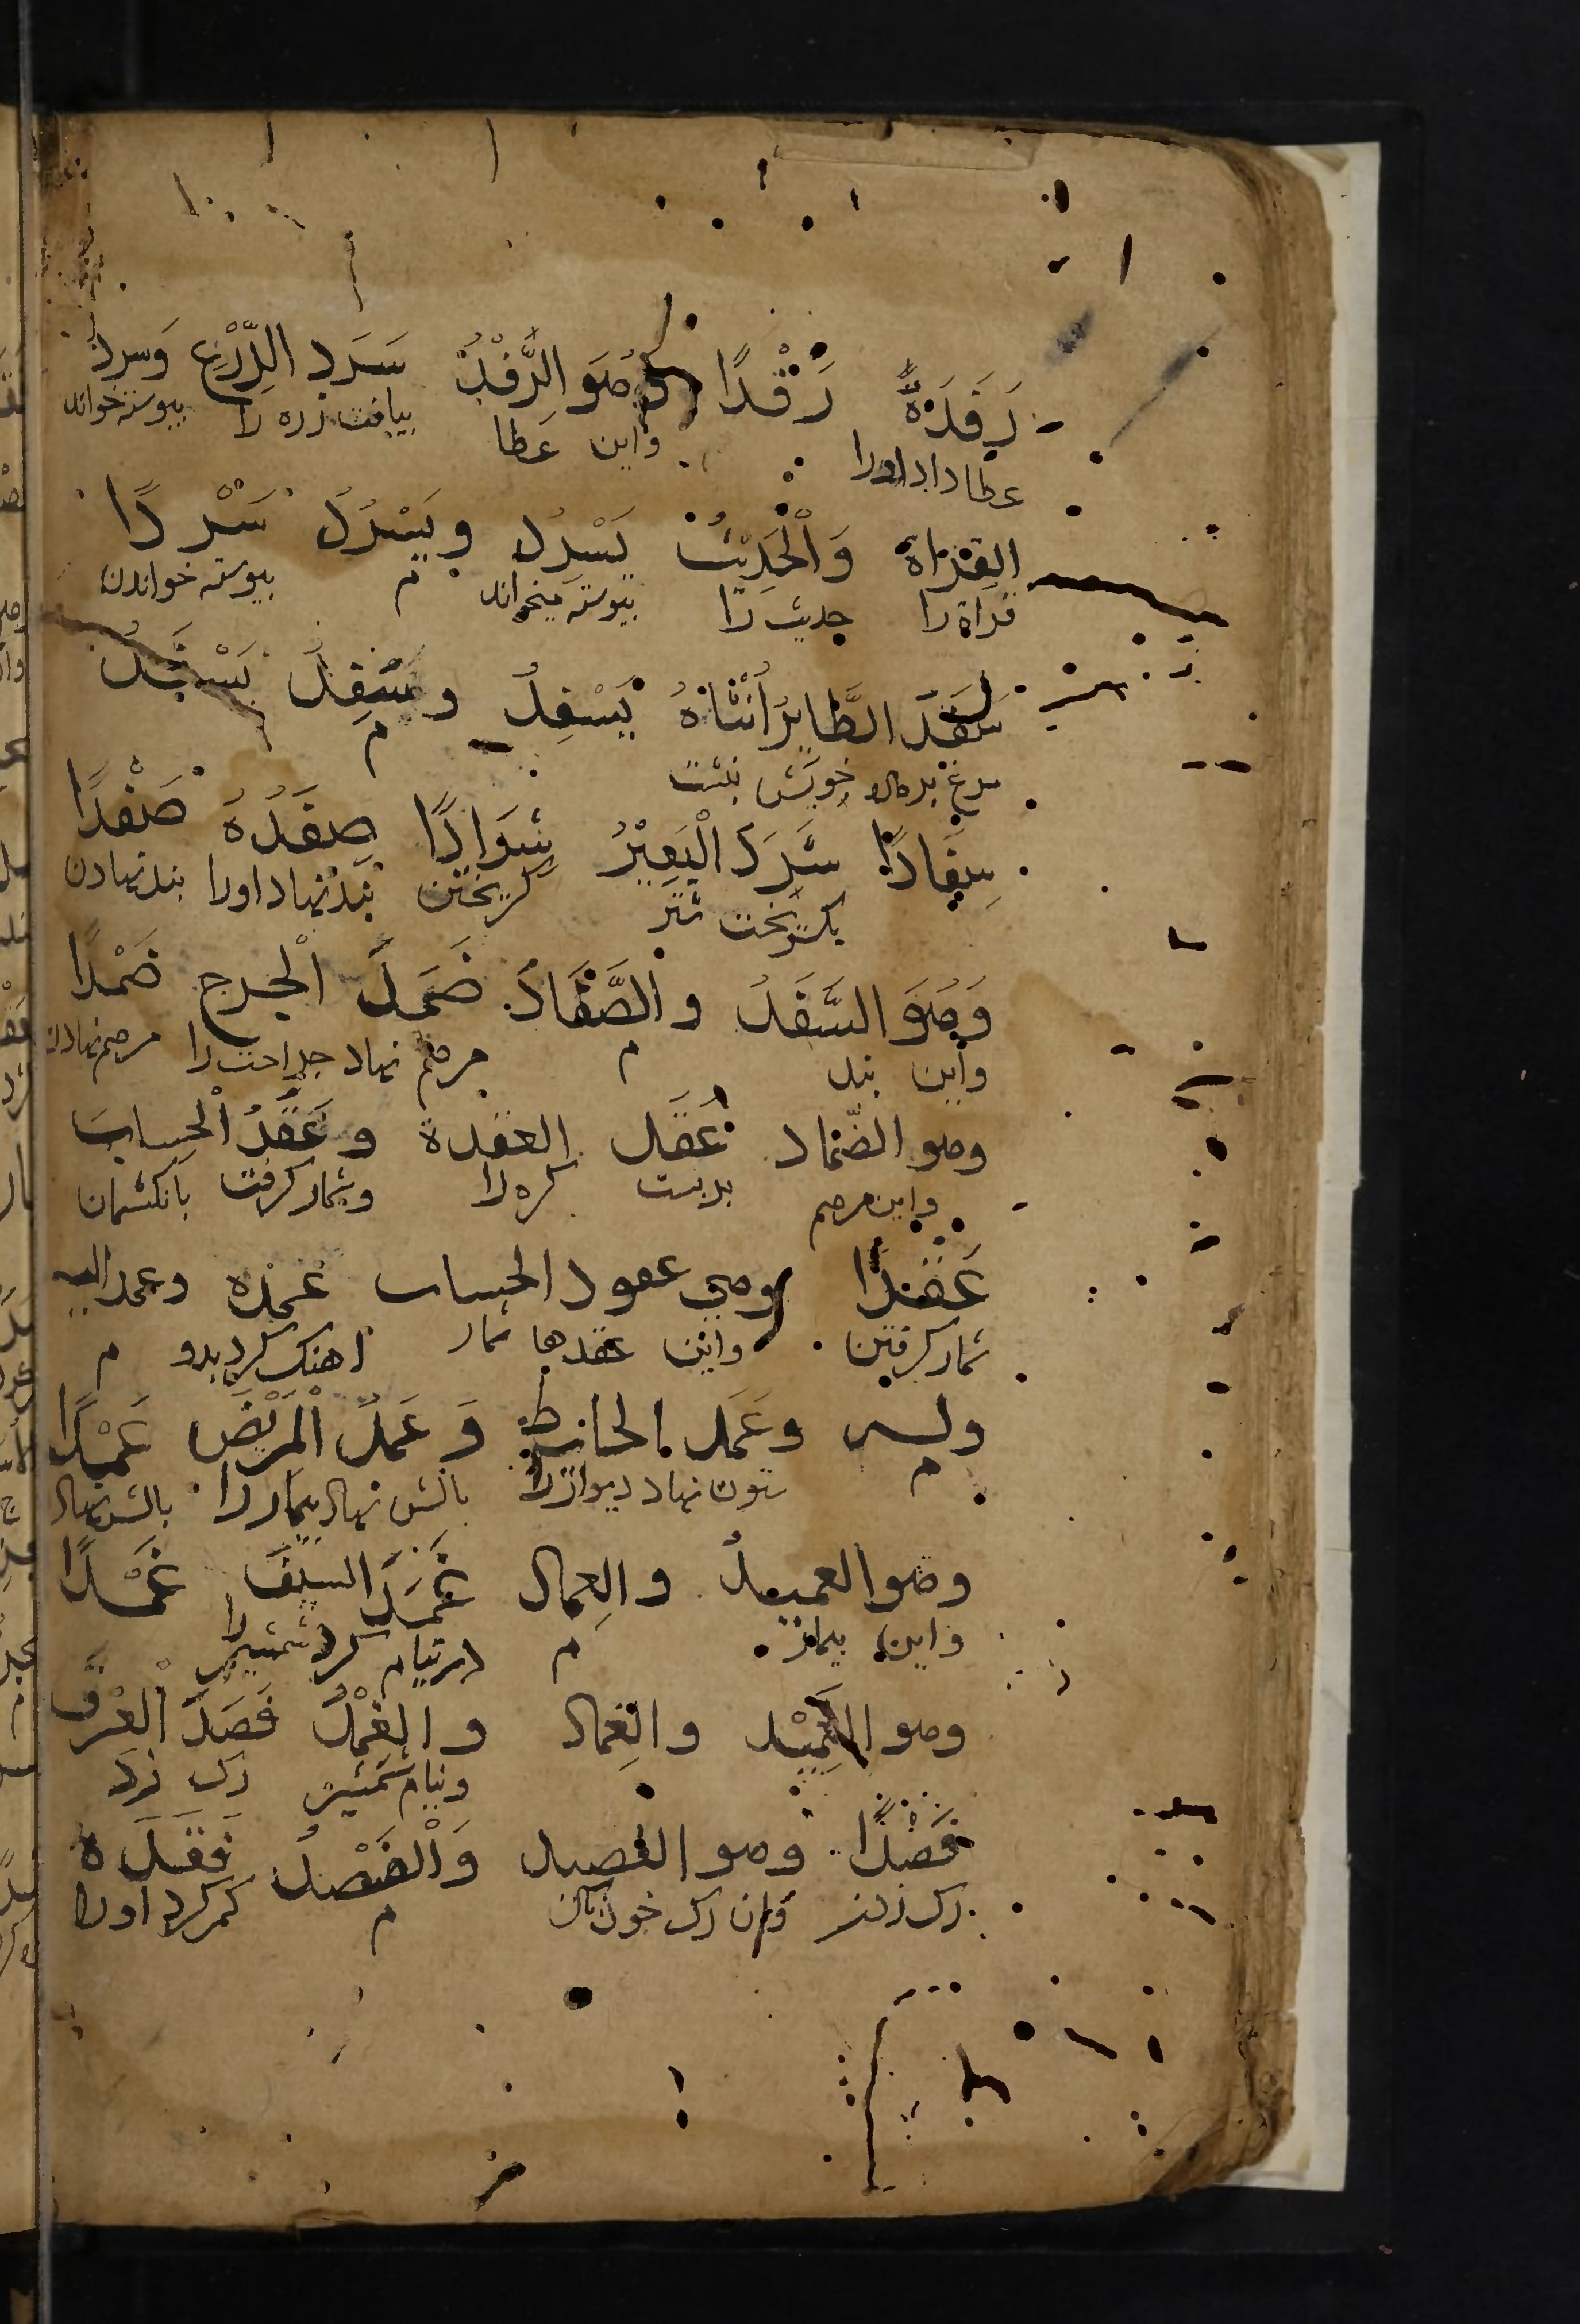 رَفَدَهُ رَفْدًا وَهُوَ الرِّفْدُ سَرَدَ الدِّرْعَ وَسرد
عطا داد اورا واین عطا ببافت زره را پیوسته خواند
القراةَ وَالْحَدِيثَ يَسْرِدُ ويَسْرُدُ سَرْدًا
قراة را حدیث را پیوسته میخواند م پیوسته خواندن
سَفَدَ الطَّايِرُ أُنْثَاهُ يَسْفِدُ و يَسْفَدُ
مرغ بر ماده خویش بنشست م
سِفَادًا شَرَدَ الْبَعِيْرُ شِرَادًا صفَدَهُ صَفْدًا
بگریخت شتر گریختن بند نهاد اورا بند نهادن
وَهُوَ الصَّفَدُ و الصَّفَادُ ضَمَدَ الْجرح ضَمْدًا
واین بند م مرهم نهاد جراحت را مرهم نهادن
وهو الضّماد عَقَد العقدة و عَقَدَ الْحِسابَ
واین مرهم ببست گره را وشمار گرفت بانگشتان
عَقْدًا وهي عقود الحساب عمده وعمد اليه
شمار گرفتن واین عقدها شمار اهنگ کرد بدو م
وله وعَمَد الحائط وَ عَمَدَ الْمَرِيْضَ عَمْدًا
م ستون نهاد دیوار را بالش نهاد بیمار را بالش نهاد
وهو العميدُ والعِماد غَمَدَ السيفَ غَمْدًا
واین بیمار م در نیام کرد شمشیر را
وهو الغَمِيْد والغِماد و الغِمْدُ فَصَدَ الْعِرْقَ
ونیام شمشیر رگ زد
فَصْدًا وهو الفصيد وَالْفَصْدُ فقَدَه
رگ زدن وان رگ خون م گم کرد اورا